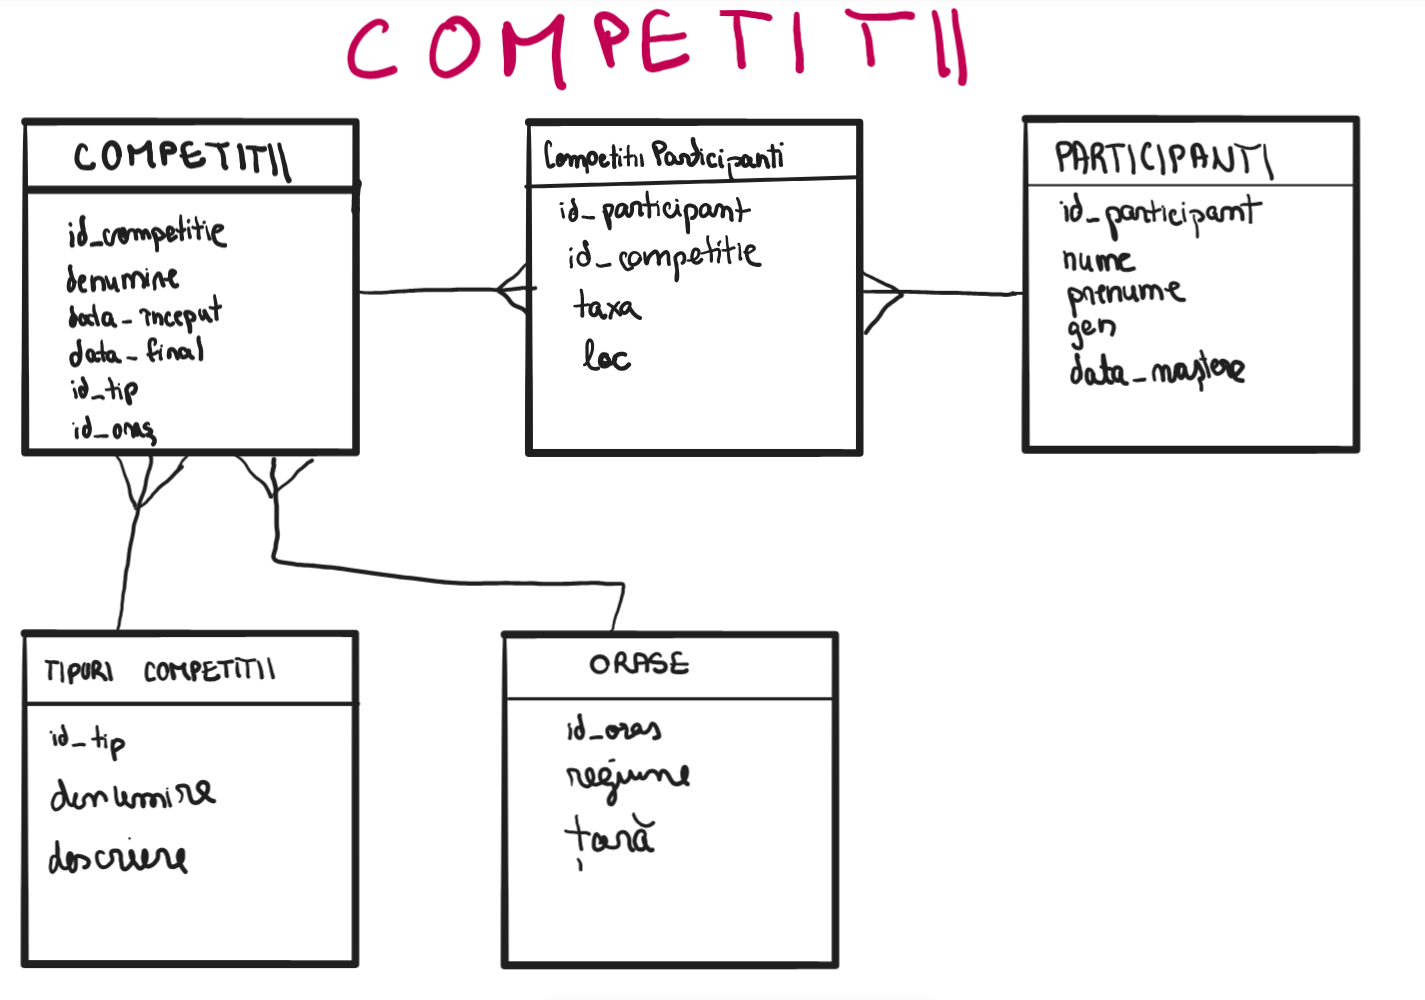 COMPETITII
COMPETITII
id_competitie
denumire
data_inceput
data_final
id_tip
id_oraș
Competitii Participanti
id_participant
id_competitie
taxa
loc
PARTICIPANTI
id_participant
nume
prenume
gen
data_naștere
TIPURI COMPETITII
id_tip
denumire
descriere
ORASE
id_oras
regiune
țară